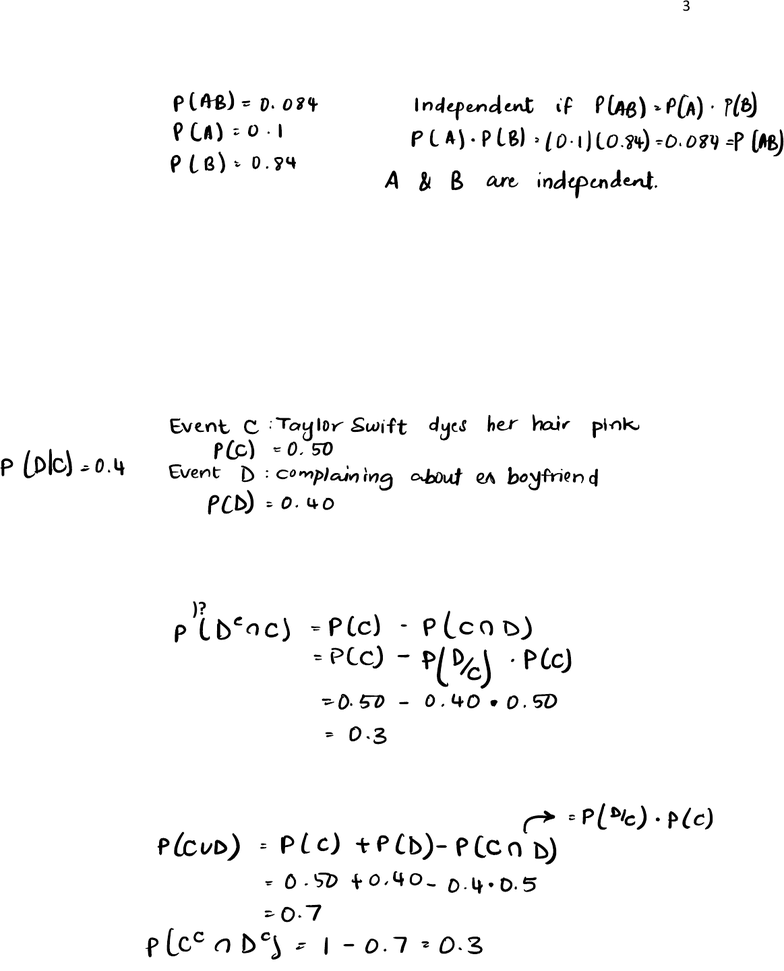 3
P(AB) = 0.084
Independent if P(AB) = P(A) · P(B)
P(A) = 0.1
P(A) · P(B) = (0.1)(0.84) = 0.084 = P(AB)
P(B) = 0.84
A & B are independent.
Event C : Taylor Swift dyes her hair pink
P(C) = 0.50
P(D|C) = 0.4
Event D : complaining about ex boyfriend
P(D) = 0.40
)?
P(Dᶜ∩C) = P(C) - P(C∩D)
= P(C) - P(D/C) · P(C)
= 0.50 - 0.40 • 0.50
= 0.3
= P(D/C) · P(C)
P(C∪D) = P(C) + P(D) - P(C∩D)
= 0.50 + 0.40 - 0.4 · 0.5
= 0.7
P(Cᶜ ∩ Dᶜ) = 1 - 0.7 = 0.3